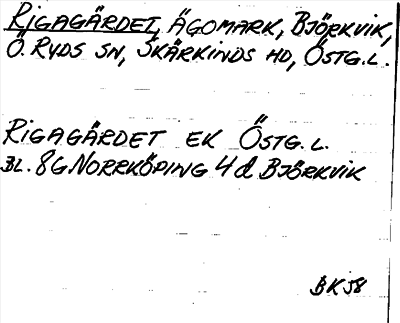 RIGAGÄRDET, ÄGOMARK, BJÖRKVIK,
Ö. RYDS SN, SKÄRKINDS HD, ÖSTG. L.
RIGAGÄRDET EK ÖSTG. L.
BL. 8G NORRKÖPING 4d BJÖRKVIK
BK58